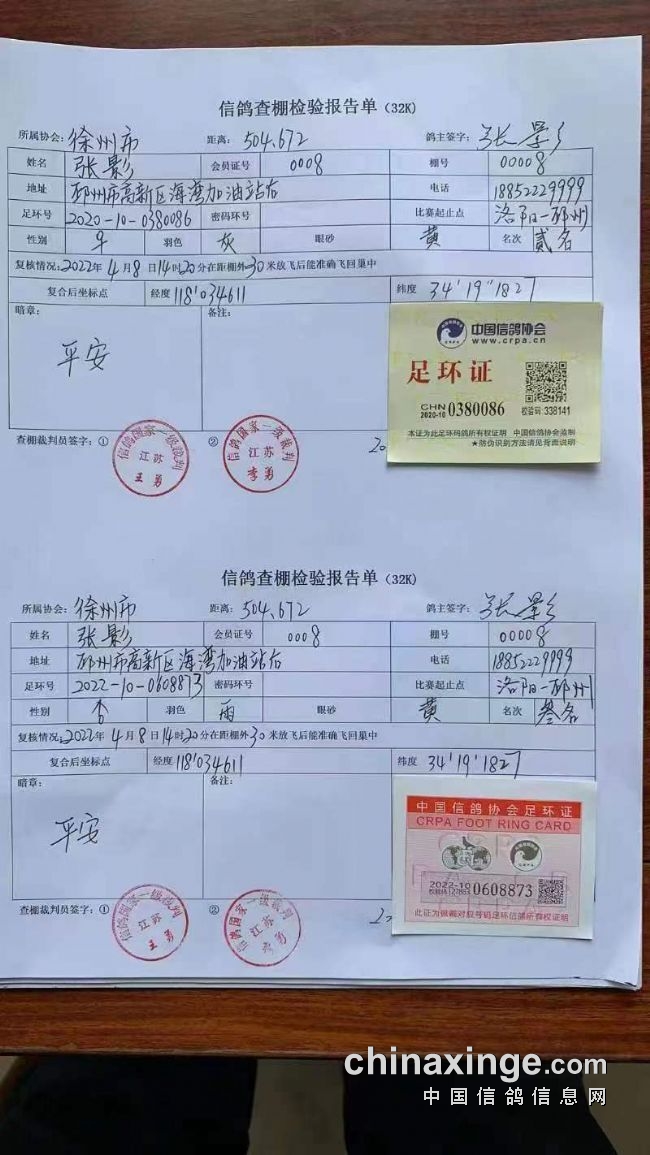 信鸽查棚检验报告单（32K）
所属协会：徐州市 距离：504.672 鸽主签字：张影
姓名 张影 会员证号 0008 棚号 00008
地址 邳州市高新区海湾加油站右 电话 18852229999
足环号 2020-10-0380086 密码环号 比赛起止点 洛阳-邳州
性别 羽色 灰 眼砂 黄 名次 贰名
复核情况：2022年4月8日14时20分在距棚外30米放飞后能准确飞回巢中
复合后坐标点 经度 118°034611 纬度 34°19"1827
暗章： 备注：
平安
中国信鸽协会
www.crpa.cn
足环证
CHN 2020-10 0380086 校验码：338141
本证为此足环码鸽所有权证明 中国信鸽协会监制
★防伪识别方法请见背面说明
查棚裁判员签字：① ②
信鸽国家一级裁判 江苏 王勇
信鸽国家一级裁判 江苏 李勇
信鸽查棚检验报告单（32K）
所属协会：徐州市 距离：504.672 鸽主签字：张影
姓名 张影 会员证号 0008 棚号 00008
地址 邳州市高新区海湾加油站右 电话 18852229999
足环号 2022-10-0608873 密码环号 比赛起止点 洛阳-邳州
性别 羽色 雨 眼砂 黄 名次 叁名
复核情况：2022年4月8日14时20分在距棚外30米放飞后能准确飞回巢中
复合后坐标点 经度 118°034611 纬度 34°19'1827
暗章： 备注：
平安
中国信鸽协会足环证
CRPA FOOT RING CARD
2022-10 0608873
此证为佩戴对应号码足环信鸽所有权证明
查棚裁判员签字：① ②
信鸽国家一级裁判 江苏 王勇
信鸽国家一级裁判 江苏 李勇
chinaxinge.com
中国信鸽信息网